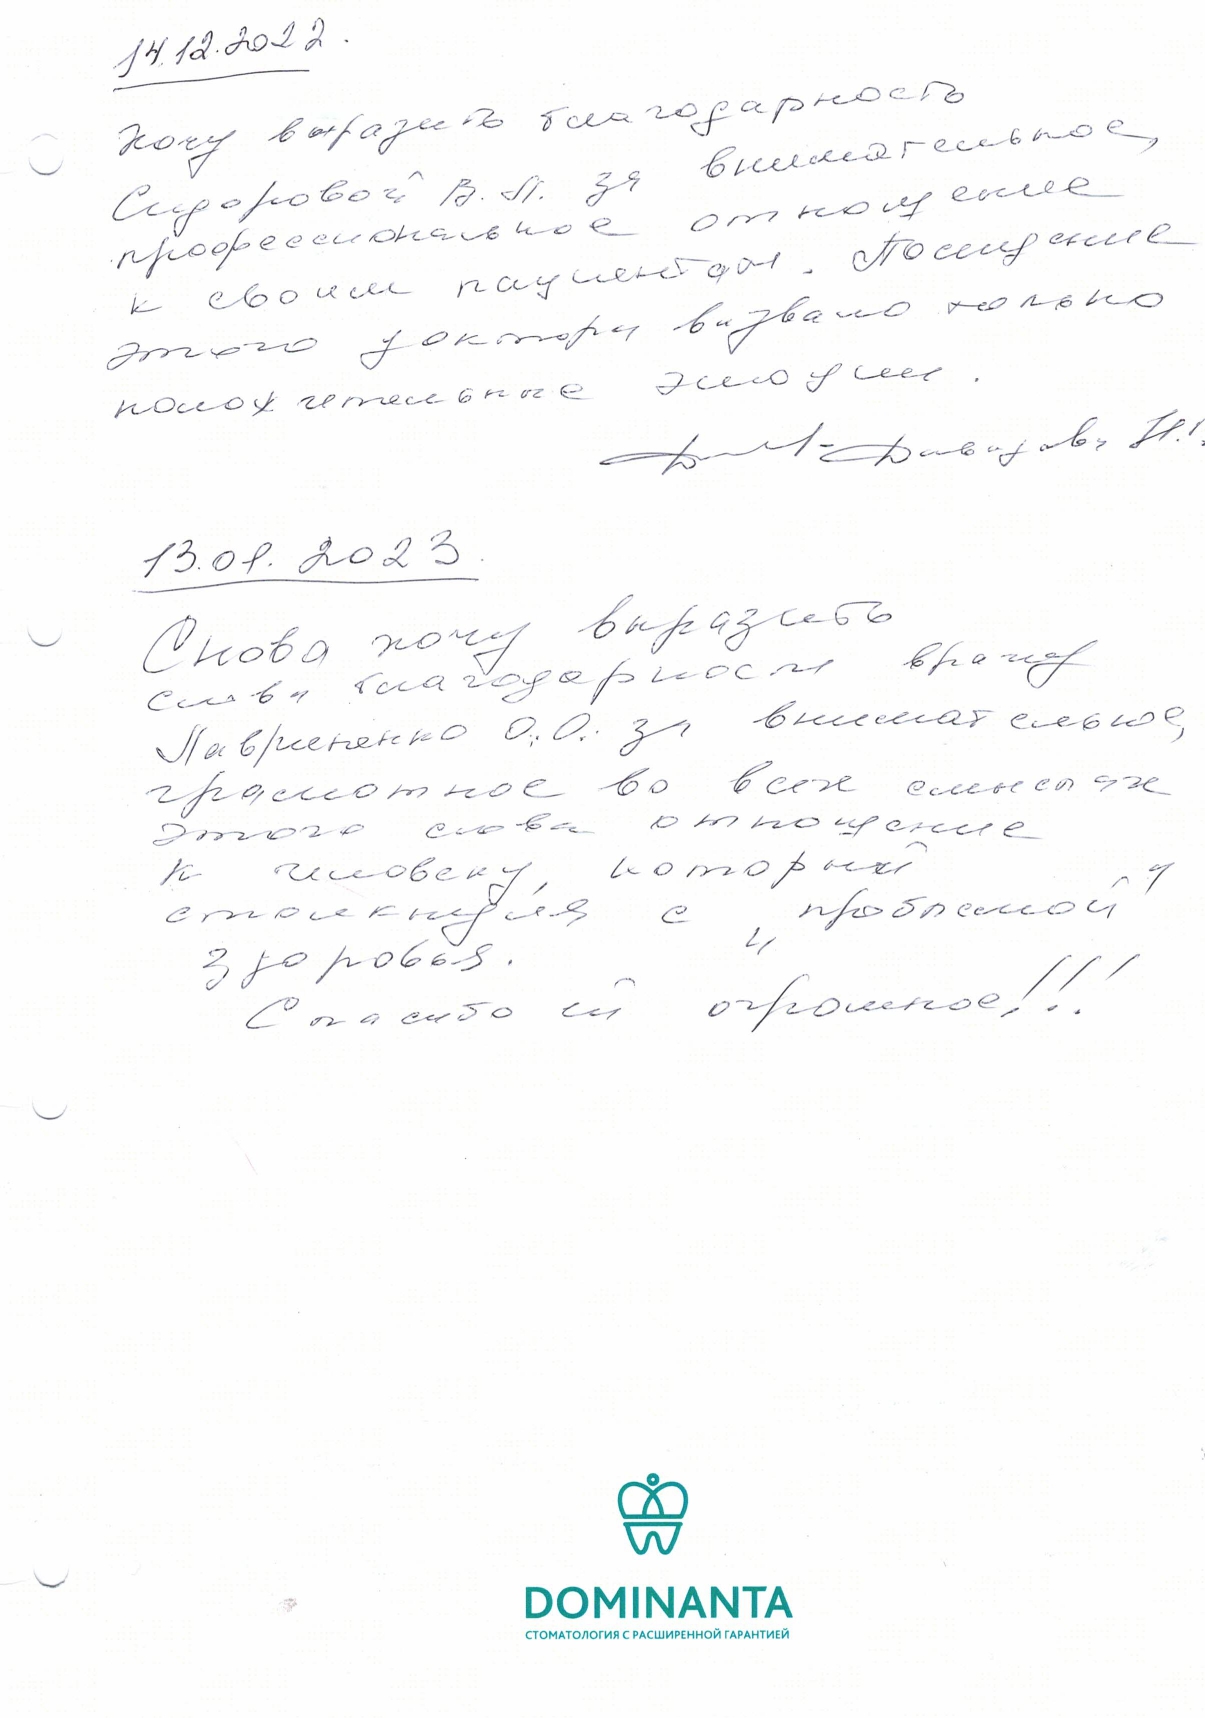 14.12.2022.
Хочу выразить благодарность
Сидоровой В. Л. за внимательное,
профессиональное отношение
к своим пациентам. Посещение
этого доктора вызвало только
положительные эмоции.
Давыдова Н.
13.01.2023.
Снова хочу выразить
слова благодарности врачу
Лавриненко О.О. за внимательное,
грамотное во всех смыслах
этого слова отношение
к человеку, который
столкнулся с „проблемой"
здоровья.
Спасибо ей огромное!!!
DOMINANTA
СТОМАТОЛОГИЯ С РАСШИРЕННОЙ ГАРАНТИЕЙ